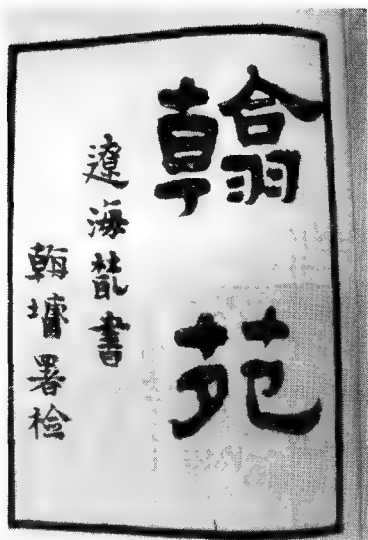 翰苑
遼海叢書
墉署檢